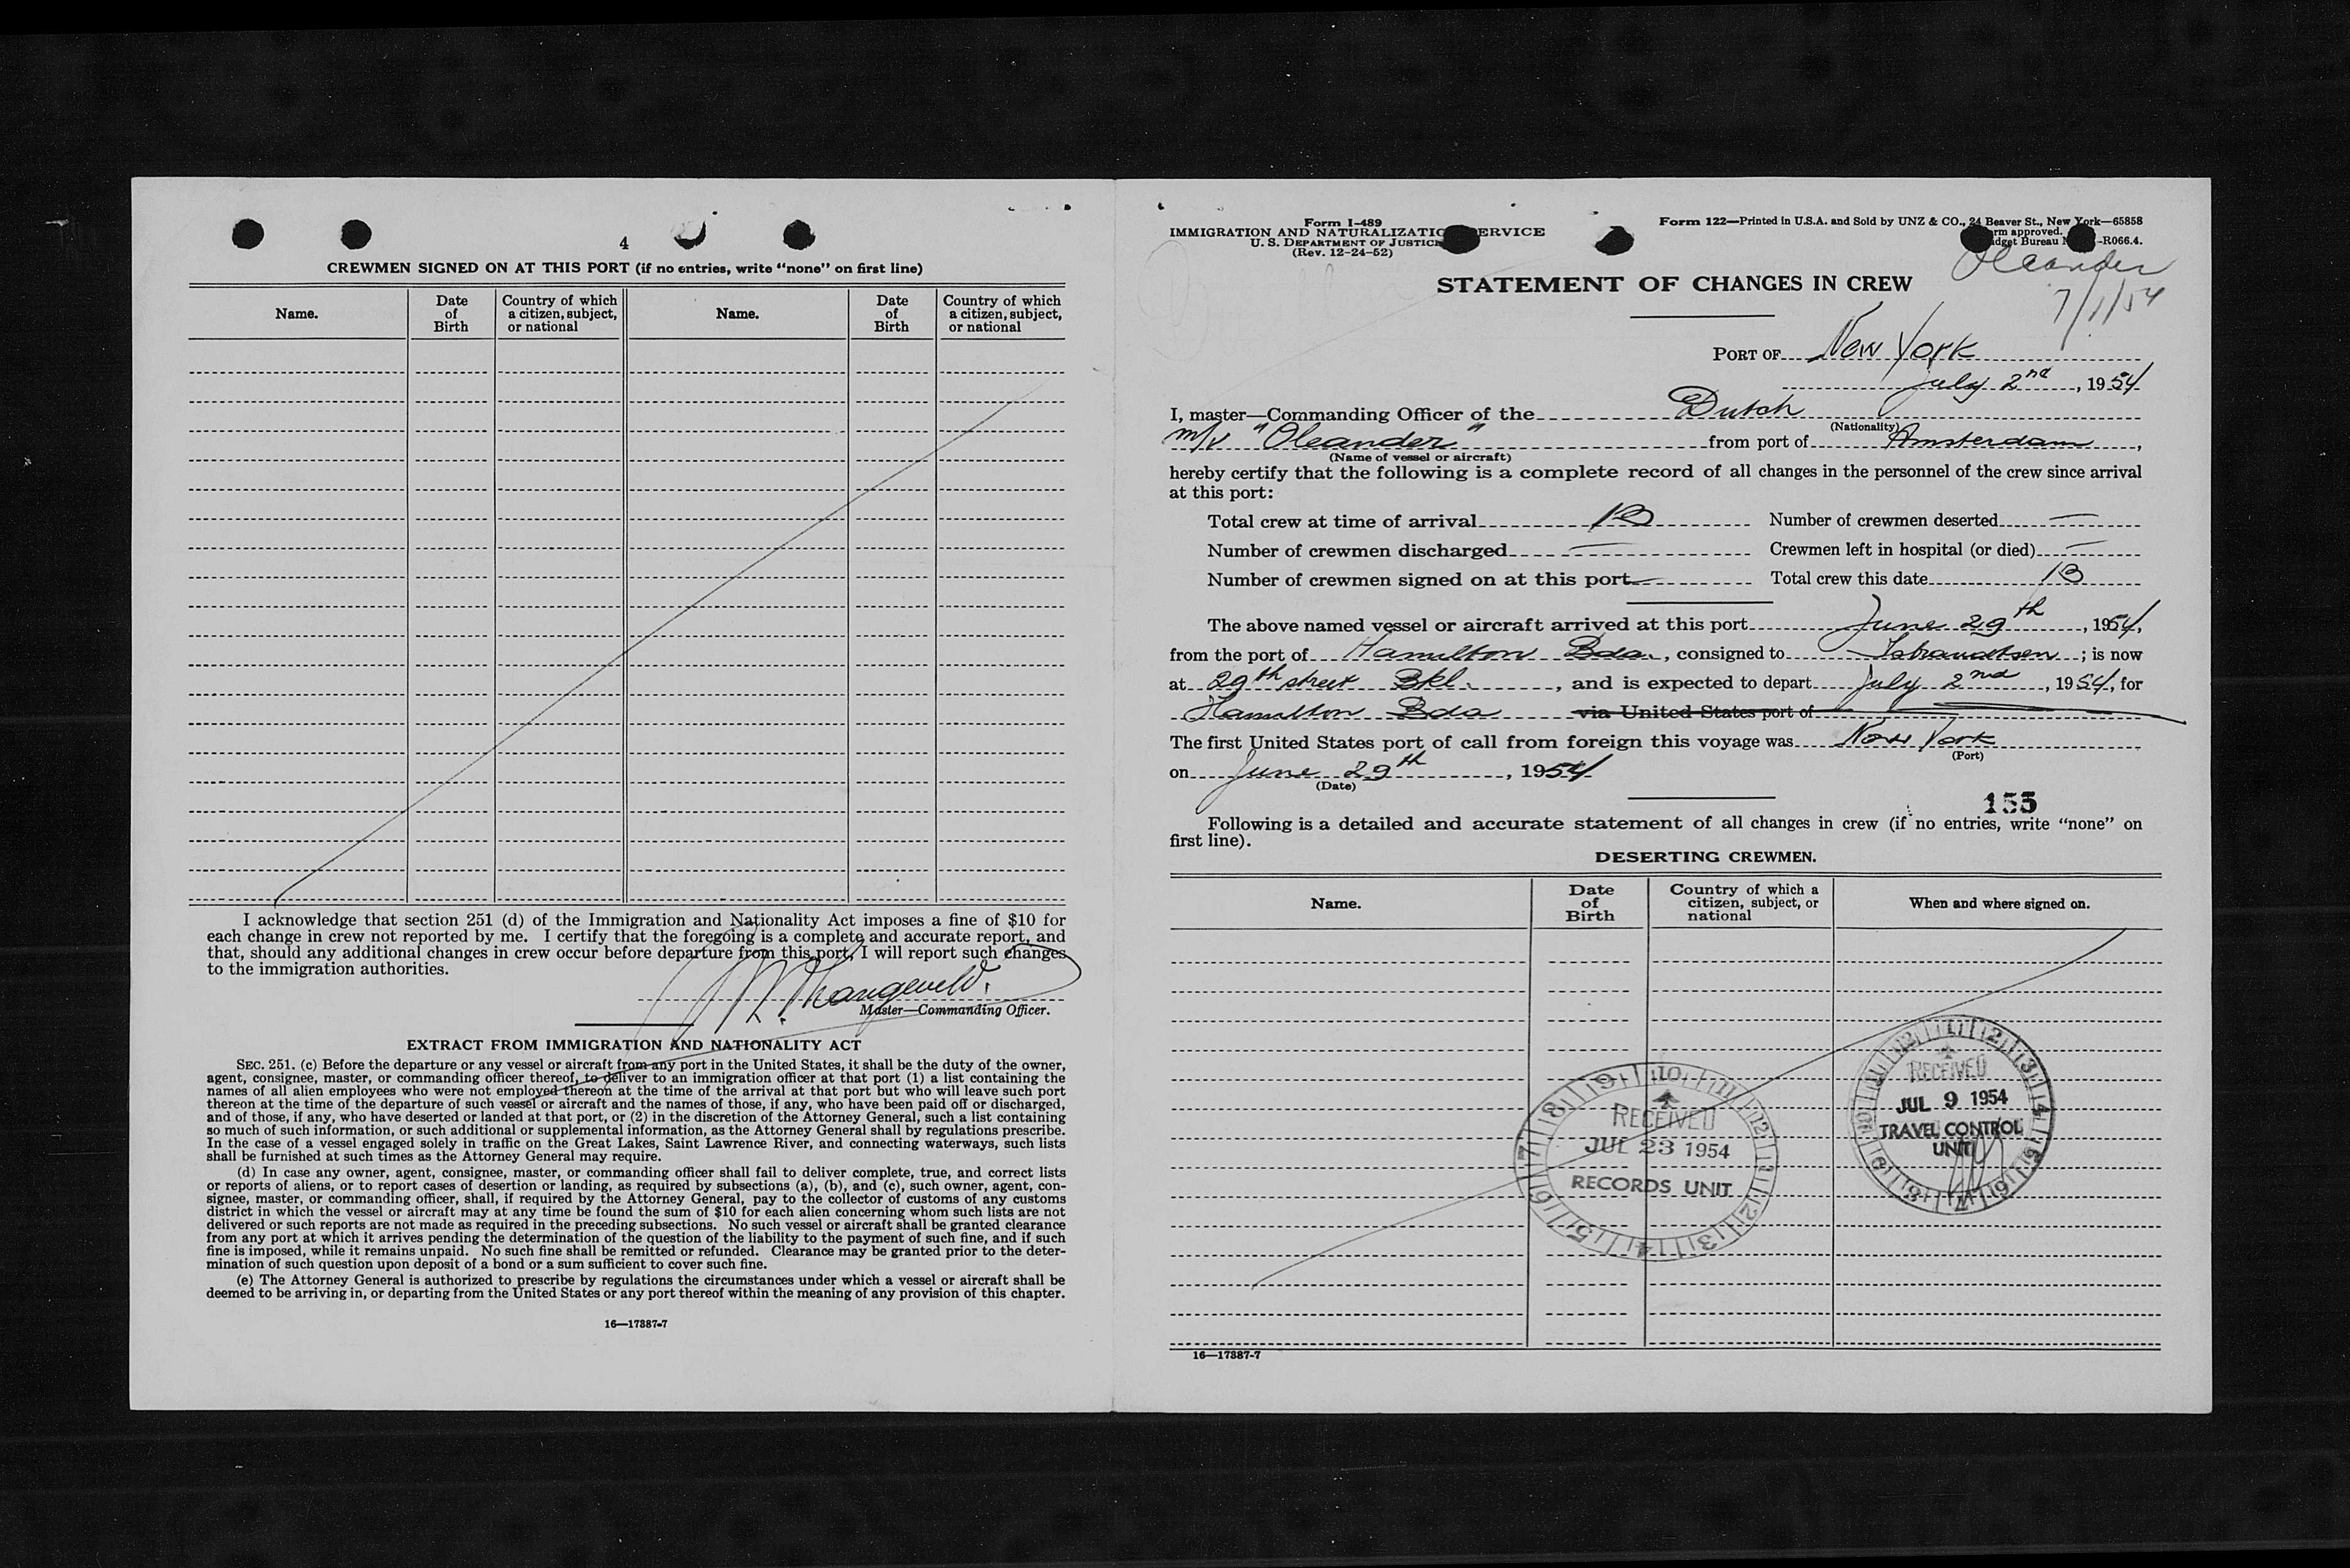 4
CREWMEN SIGNED ON AT THIS PORT (if no entries, write "none" on first line)
Name. Date of Birth Country of which a citizen, subject, or national Name. Date of Birth Country of which a citizen, subject, or national
I acknowledge that section 251 (d) of the Immigration and Nationality Act imposes a fine of $10 for
each change in crew not reported by me. I certify that the foregoing is a complete and accurate report, and
that, should any additional changes in crew occur before departure from this port, I will report such changes
to the immigration authorities.
Master—Commanding Officer.
EXTRACT FROM IMMIGRATION AND NATIONALITY ACT
SEC. 251. (c) Before the departure or any vessel or aircraft from any port in the United States, it shall be the duty of the owner,
agent, consignee, master, or commanding officer thereof, to deliver to an immigration officer at that port (1) a list containing the
names of all alien employees who were not employed thereon at the time of the arrival at that port but who will leave such port
thereon at the time of the departure of such vessel or aircraft and the names of those, if any, who have been paid off or discharged,
and of those, if any, who have deserted or landed at that port, or (2) in the discretion of the Attorney General, such a list containing
so much of such information, or such additional or supplemental information, as the Attorney General shall by regulations prescribe.
In the case of a vessel engaged solely in traffic on the Great Lakes, Saint Lawrence River, and connecting waterways, such lists
shall be furnished at such times as the Attorney General may require.
(d) In case any owner, agent, consignee, master, or commanding officer shall fail to deliver complete, true, and correct lists
or reports of aliens, or to report cases of desertion or landing, as required by subsections (a), (b), and (c), such owner, agent, con-
signee, master, or commanding officer, shall, if required by the Attorney General, pay to the collector of customs of any customs
district in which the vessel or aircraft may at any time be found the sum of $10 for each alien concerning whom such lists are not
delivered or such reports are not made as required in the preceding subsections. No such vessel or aircraft shall be granted clearance
from any port at which it arrives pending the determination of the question of the liability to the payment of such fine, and if such
fine is imposed, while it remains unpaid. No such fine shall be remitted or refunded. Clearance may be granted prior to the deter-
mination of such question upon deposit of a bond or a sum sufficient to cover such fine.
(e) The Attorney General is authorized to prescribe by regulations the circumstances under which a vessel or aircraft shall be
deemed to be arriving in, or departing from the United States or any port thereof within the meaning of any provision of this chapter.
16—17887-7
Form I-489
IMMIGRATION AND NATURALIZATIO ERVICE
U. S. DEPARTMENT OF JUSTIC
(Rev. 12-24-52)
Form 122—Printed in U.S.A. and Sold by UNZ & CO., 24 Beaver St., New York—65858
rm approved.
dget Bureau -R066.4.
Oleander
7/1/54
STATEMENT OF CHANGES IN CREW
PORT OF New York
July 2nd, 1954
I, master—Commanding Officer of the Dutch
(Nationality)
m/v "Oleander" from port of Amsterdam,
(Name of vessel or aircraft)
hereby certify that the following is a complete record of all changes in the personnel of the crew since arrival
at this port:
Total crew at time of arrival 13 Number of crewmen deserted —
Number of crewmen discharged — Crewmen left in hospital (or died) —
Number of crewmen signed on at this port — Total crew this date 13
The above named vessel or aircraft arrived at this port June 29th, 1954,
from the port of Hamilton Bda., consigned to ; is now
at 29th street Bkl., and is expected to depart July 2nd, 1954, for
Hamilton Bda via United States port of
The first United States port of call from foreign this voyage was New York
(Port)
on June 29th, 1954
(Date)
155
Following is a detailed and accurate statement of all changes in crew (if no entries, write "none" on
first line).
DESERTING CREWMEN.
Name. Date of Birth Country of which a citizen, subject, or national When and where signed on.
RECEIVED
JUL 23 1954
RECORDS UNIT
RECEIVED
JUL 9 1954
TRAVEL CONTROL
UNIT
16—17887-7